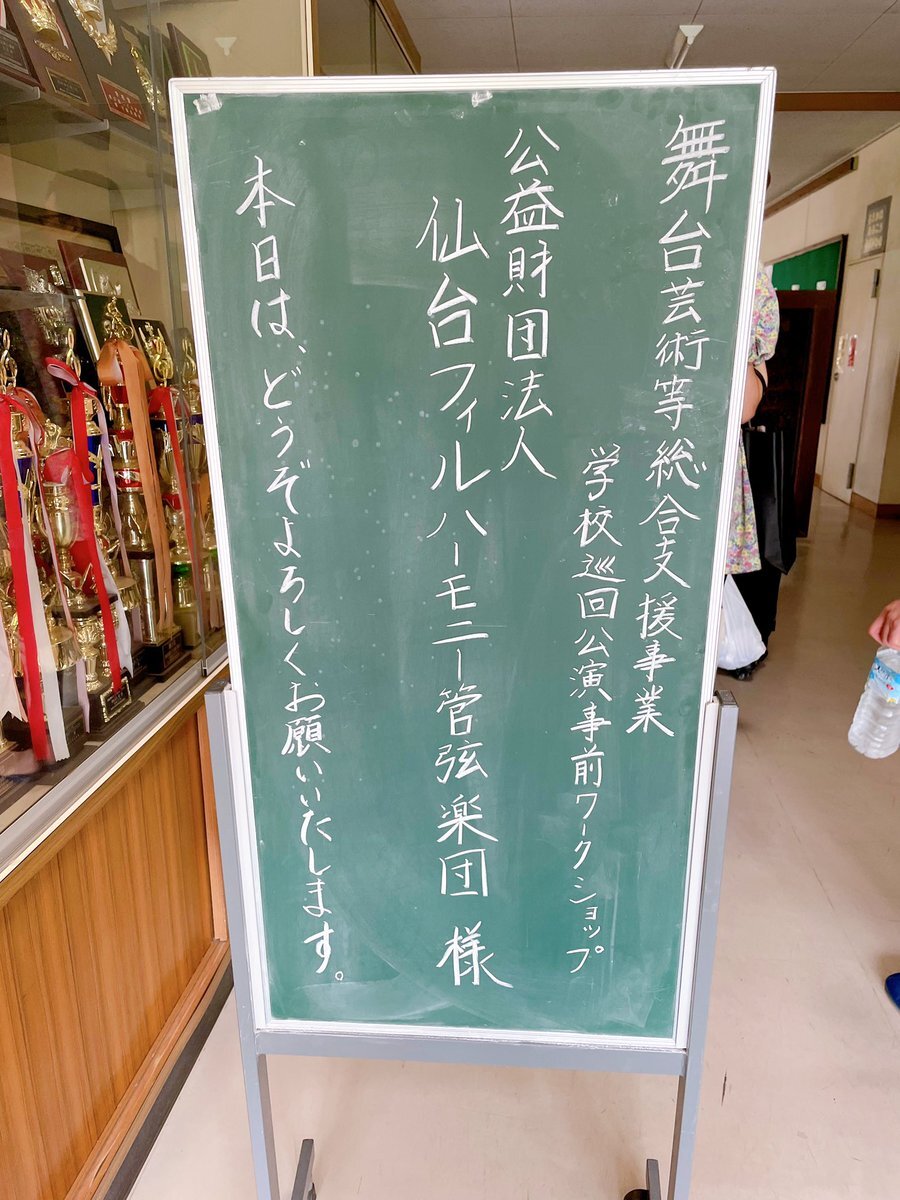 舞台芸術等総合支援事業
学校巡回公演事前ワークショップ
公益財団法人
仙台フィルハーモニー管弦楽団 様
本日は、どうぞよろしくお願いいたします。